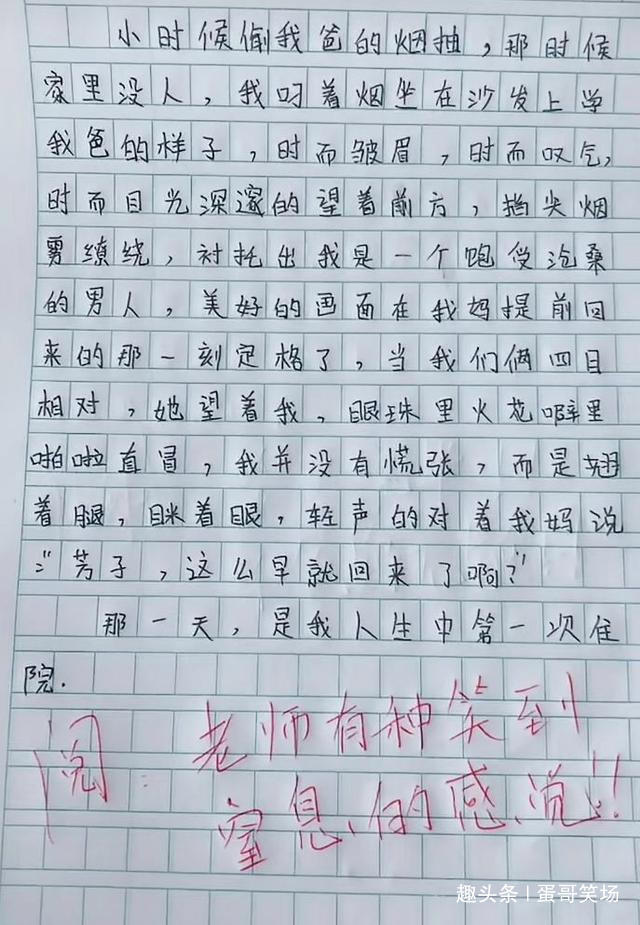 小时候偷我爸的烟抽，那时候
家里没人，我叼着烟坐在沙发上学
我爸的样子，时而皱眉，时而叹气，
时而目光深邃的望着前方，指尖烟
雾缭绕，衬托出我是一个饱受沧桑
的男人，美好的画面在我妈提前回
来的那一刻定格了，当我们俩四目
相对，她望着我，眼珠里火花噼里
啪啦直冒，我并没有慌张，而是翘
着腿，眯着眼，轻声的对着我妈说
：“芳子，这么早就回来了啊？”
那一天，是我人生中第一次住
院.
阅：老师有种笑到
窒息的感觉!!
趣头条 | 蛋哥笑场